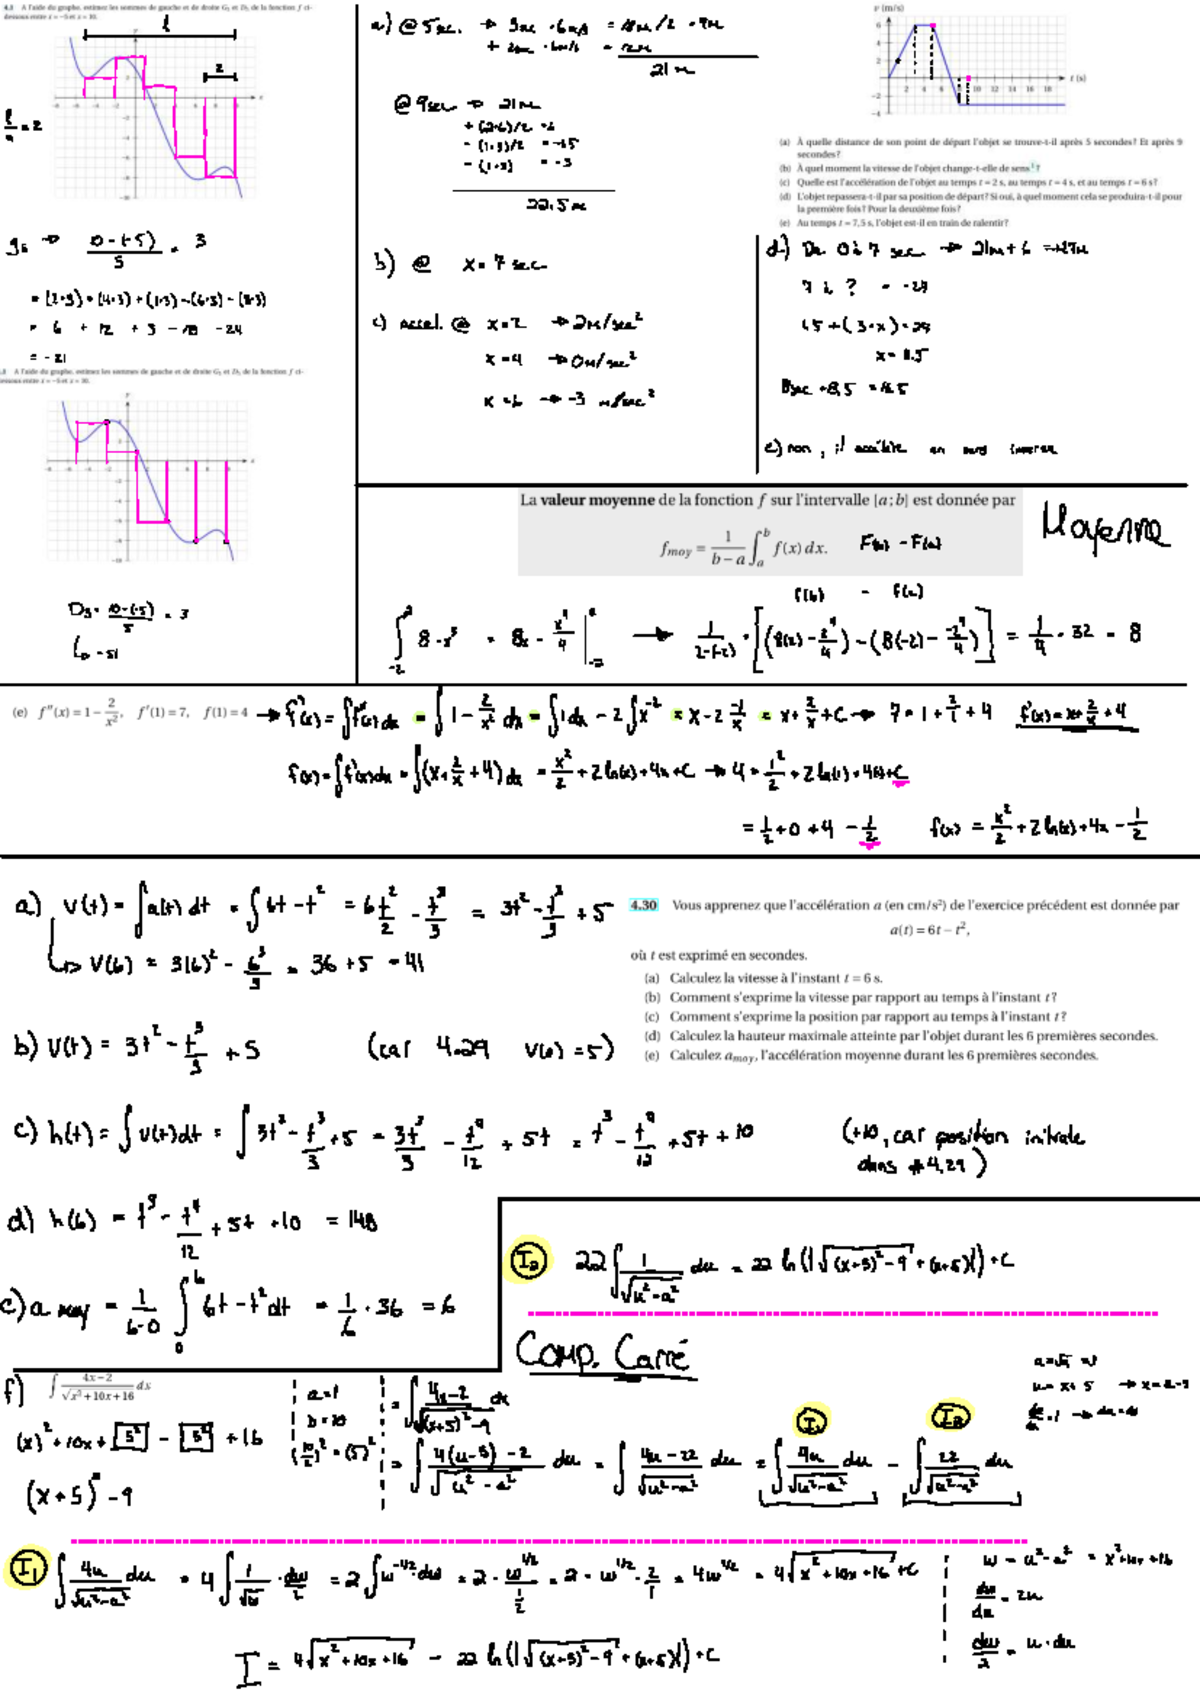 4.1 A l'aide du graphe, estimez les sommes de gauche et de droite G5 et D5 de la fonction f ci-
dessous entre x = −5 et x = 10.
2
= 2
10-(-5)/5 = 3
= (2·3)+(4·3)+(1·3)-(6·3)-(8·3)
= 6 + 12 + 3 - 18 - 24
= -21
A l'aide du graphe, estimez les sommes de gauche et de droite G5 et D5 de la fonction f ci-
dessous entre x = −5 et x = 10.
D5 = 10-(-5)/5 = 3
↳ -51
a) @ 5 sec.
21m
@ 9 sec → 21m
+ (2·6)/2 = 6
- (1·3)/2 = -1.5
- (1·3) = -3
22.5m
b) @ x = 7 sec
c) accel. @ x=2 → 2m/sec²
x=4 → 0m/sec²
x=6 → -3 m/sec²
v (m/s)
6
4
2
−2
−4
2 4 6 8 10 12 14 16 18
t (s)
(a) À quelle distance de son point de départ l'objet se trouve-t-il après 5 secondes? Et après 9
secondes?
(b) À quel moment la vitesse de l'objet change-t-elle de sens¹?
(c) Quelle est l'accélération de l'objet au temps t = 2 s, au temps t = 4 s, et au temps t = 6 s?
(d) L'objet repassera-t-il par sa position de départ? Si oui, à quel moment cela se produira-t-il pour
la première fois? Pour la deuxième fois?
(e) Au temps t = 7,5 s, l'objet est-il en train de ralentir?
d) De 0 à 7 sec → 21m + 6 = 27m
7 à ? = -27
1.5 + (3·x) = 27
x = 8.5
8sec + 8,5 = 16.5
e) non, il accélère en sens inverse
La valeur moyenne de la fonction f sur l'intervalle [a; b] est donnée par
f_moy = 1/(b − a) ∫_a^b f(x) dx.
F(b) - F(a)
f(b) - f(a)
Moyenne
∫_{-2}^{2} 8 - x³ = 8x - x⁴/4 |_{-2}^{2} → 1/(2-(-2)) · [(8(2) - 2⁴/4) - (8(-2) - -2⁴/4)] = 1/4 · 32 = 8
(e) f″(x) = 1 − 2/x², f′(1) = 7, f(1) = 4 → f'(x) = ∫f''(x) dx = ∫ 1 - 2/x² dx = ∫1dx - 2∫x⁻² = x - 2 -1/x = x + 2/x + C → 7 = 1 + 2/1 + 4 f'(x) = x + 2/x + 4
f(x) = ∫f'(x)dx = ∫(x + 2/x + 4) dx = x²/2 + 2ln(x) + 4x + C → 4 = 1²/2 + 2ln(1) + 4(1) + C
= 1/2 + 0 + 4 - 1/2 f(x) = x²/2 + 2ln(x) + 4x - 1/2
a) v(t) = ∫a(t) dt = ∫6t - t² = 6t²/2 - t³/3 = 3t² - t³/3 + 5
↳ v(6) = 3(6)² - 6³/3 = 36 + 5 = 41
b) v(t) = 3t² - t³/3 + 5 (car 4.29 v(0) = 5)
c) h(t) = ∫v(t)dt = ∫3t² - t³/3 + 5 = 3t³/3 - t⁴/12 + 5t = t³ - t⁴/12 + 5t + 10 (+10, car position initiale
dans #4,29)
4.30 Vous apprenez que l'accélération a (en cm/s²) de l'exercice précédent est donnée par
a(t) = 6t − t²,
où t est exprimé en secondes.
(a) Calculez la vitesse à l'instant t = 6 s.
(b) Comment s'exprime la vitesse par rapport au temps à l'instant t?
(c) Comment s'exprime la position par rapport au temps à l'instant t?
(d) Calculez la hauteur maximale atteinte par l'objet durant les 6 premières secondes.
(e) Calculez a_moy, l'accélération moyenne durant les 6 premières secondes.
d) h(6) = t³ - t⁴/12 + 5t + 10 = 148
e) a moy = 1/(6-0) ∫_0^6 6t - t² dt = 1/6 · 36 = 6
I₂ 22∫ 1/√(u²-a²) du = 22 ln(|√((x+5)²-9) + (x+5)|) + C
Comp. Carré
f) ∫ (4x − 2)/√(x² + 10x + 16) dx
(x)² + 10x + 5² - 5² + 16
(x+5)² - 9
a = 1
b = 10
(10/2)² = (5)²
= ∫ (4x-2)/√((x+5)²-9) dx
= ∫ (4(u-5) - 2)/√(u²-a²) du = ∫ (4u - 22)/√(u²-a²) du = ∫ 4u/√(u²-a²) du - ∫ 22/√(u²-a²) du
I₁ I₂
a = √9 = 3
u = x + 5 → x = u-5
du/dx = 1 → du = dx
I₁ ∫ 4u/√(u²-a²) du = 4∫ 1/√w · dw/2 = 2∫w^(-1/2) dw = 2 · w^(1/2)/(1/2) = 2 · w^(1/2) · 2/1 = 4w^(1/2) = 4√(x²+10x+16) + C
w = u² - a² = x² + 10x + 16
dw/du = 2u
dw/2 = u · du
I = 4√(x²+10x+16) - 22 ln(|√((x+5)²-9) + (x+5)|) + C